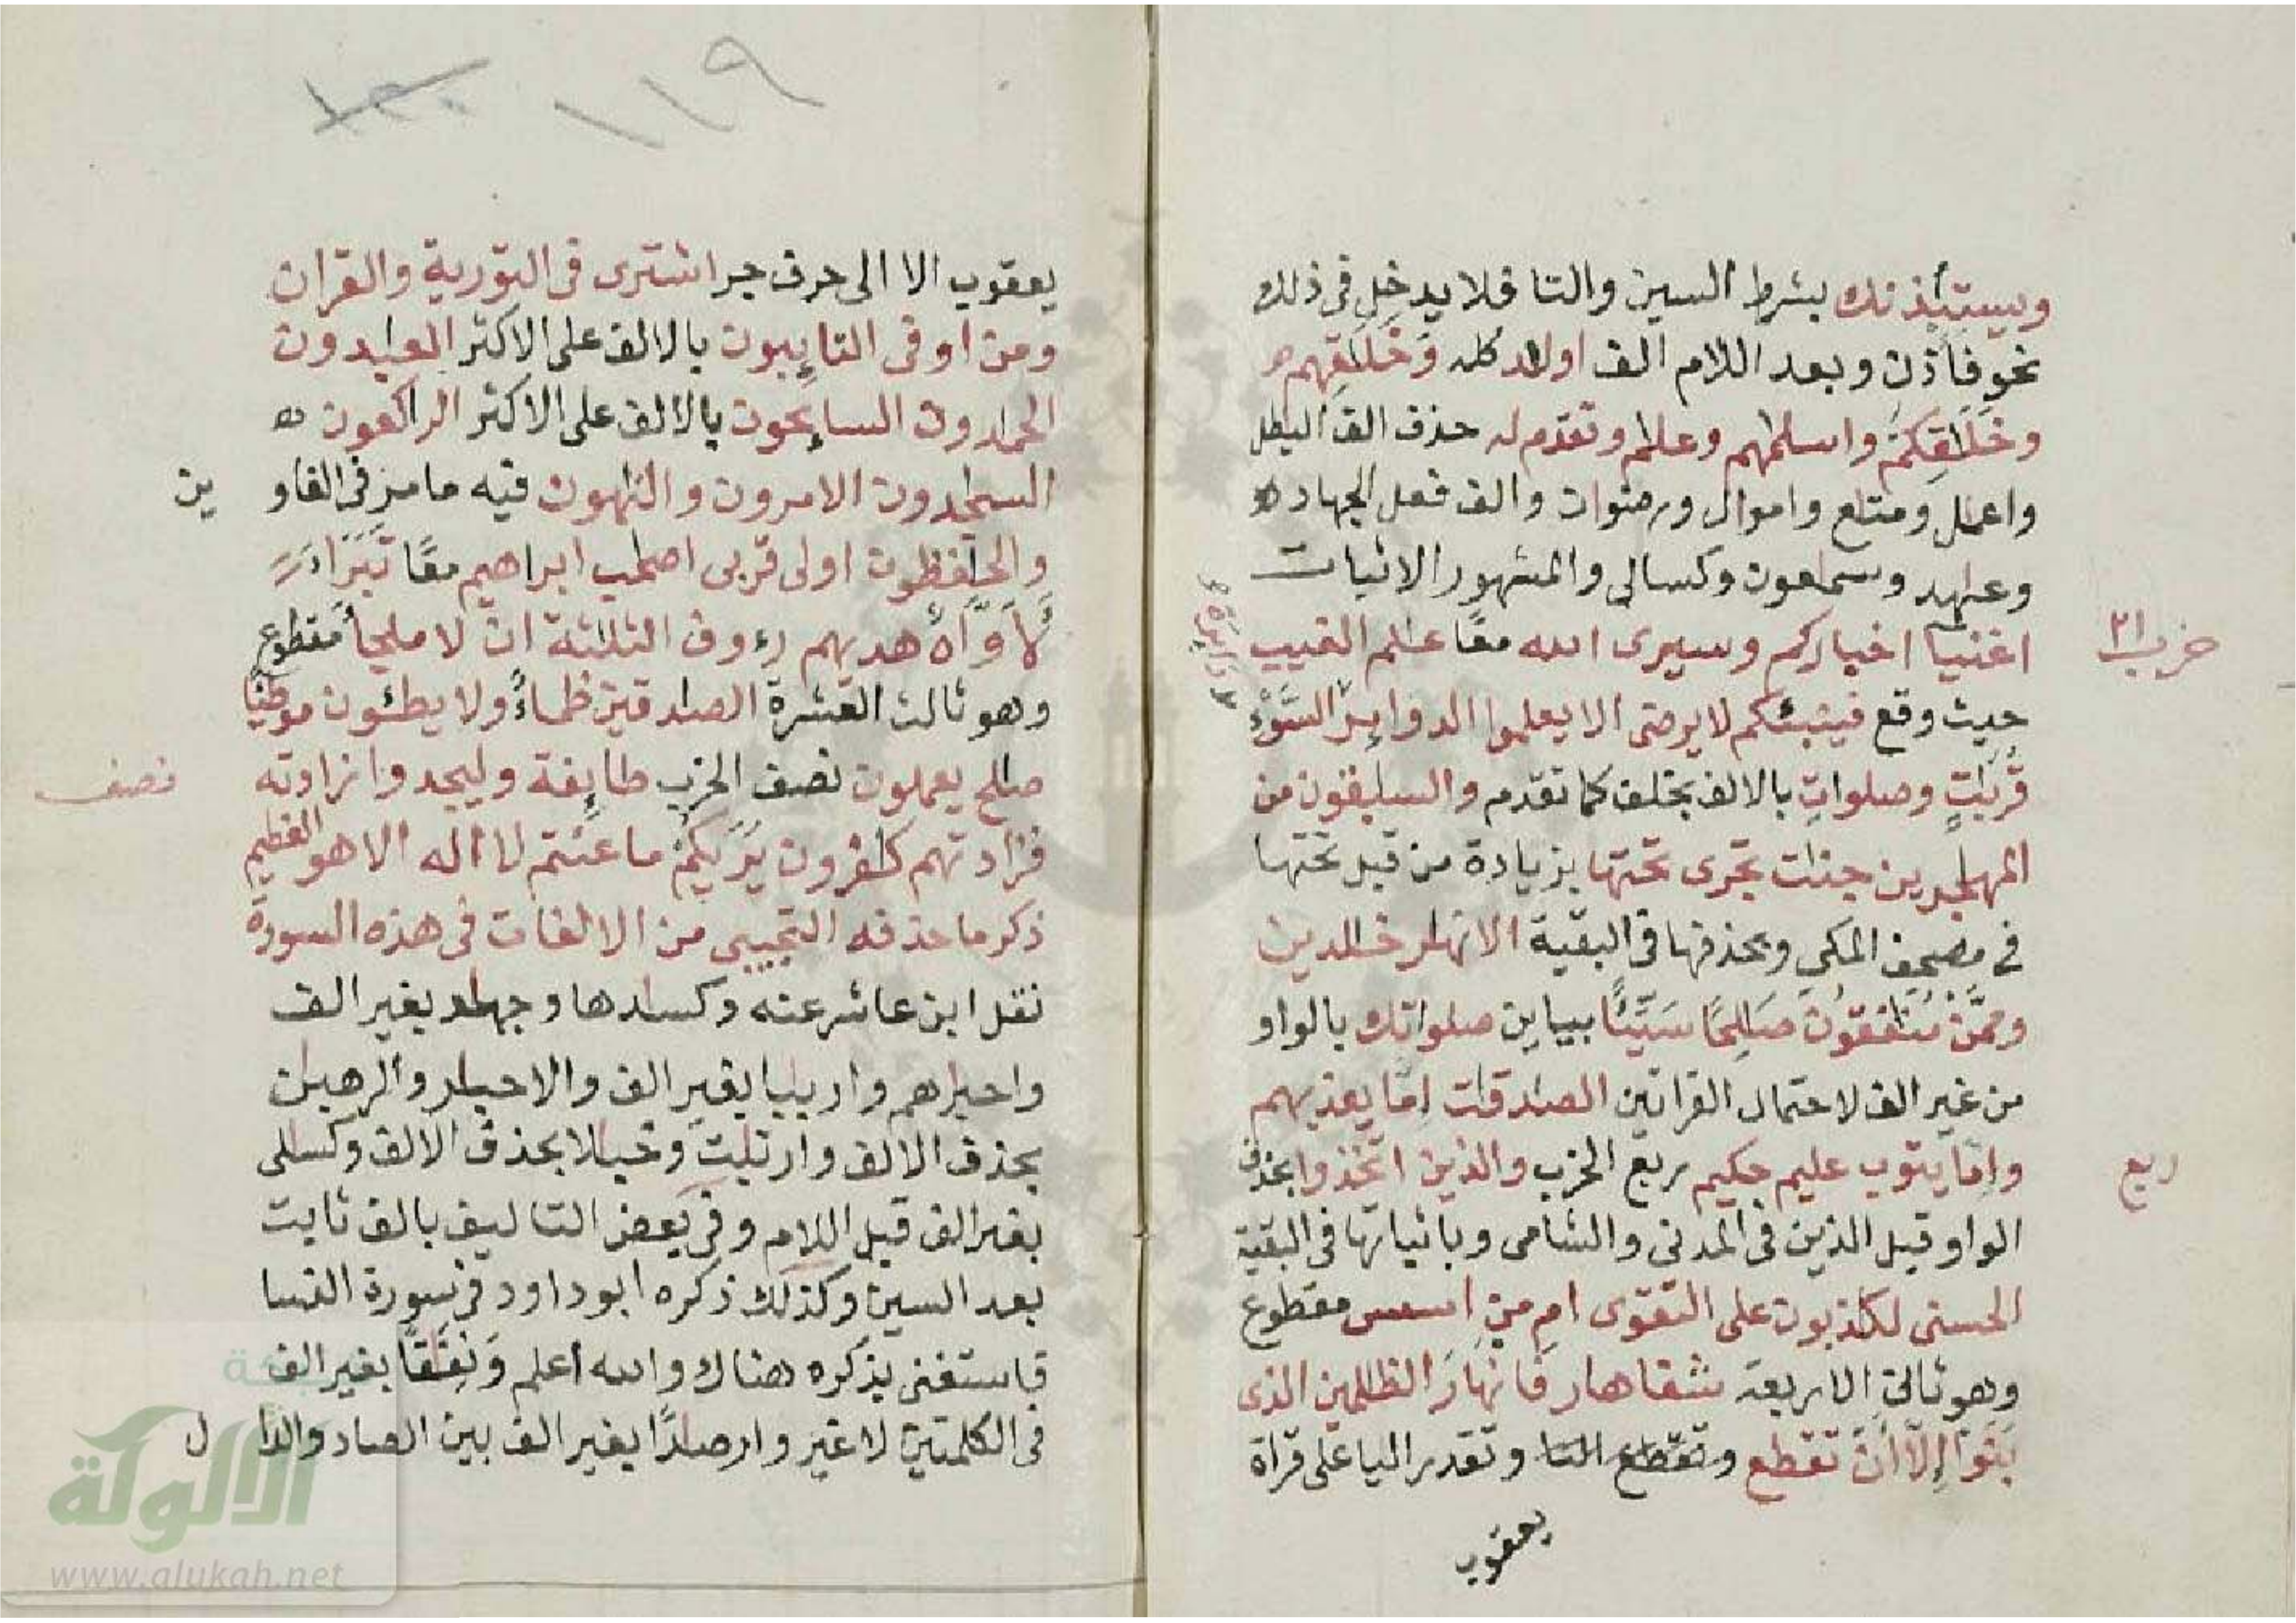 ويستـٔذنك بشرط السين والتا فلا يدخل في ذلك
نحو فأذن وبعد اللام الف اولاد كله وخلـٰقهم
وخلـٰقكم واسلـٰمهم وعلـٰم وتقدم له حذف الف البـٰطل
واعمـٰل ومتـٰع واموال ورضوان والف فعل الجهاد
وعـٰهد وسمـٰعون وكسالى والمشهور الاثبات
اغنيا اخباركم وسيرى الله معا عـٰلم الغيب
حزب ٢١
حيث وقع فينبئكم لا يرضى الا يعلموا الدوائر السَّوْء
دائرة
قربـٰتٍ وصلواتِ بالالف بخلف كما تقدم والسـٰبقون من
المهـٰجرين جنـٰت تجرى تحتها بزيادة من قبل تحتها
في مصحف المكي وبحذفها في البقية الانهـٰر خـٰلدين
وممّن منـٰفقون صـٰلِحًا سَيّئًا بيايين صلواتك بالواو
من غير الف لاحتمال القراتين الصدقـٰت إمّا يعذبهم
وإمّا يتوب عليم حكيم ربع الحزب والذين اتخذوا بحذف
ربع
الواو قبل الذين في المدني والشامي وباثباتها في البقية
الحسنى لكـٰذبون على التقوى ام من اسس مقطوع
وهو ثالث الاربعة شفا هار فَانْهَارَ الظـٰلمين الذى
بَنَوْا إِلّا أَنْ تقطع وتقطع التا وتقدر اليا على قراة
يعقوب
١١٩
يعقوب الا الى حرف جر اشترى في التورية والقران
ومن اوفى التائبون بالالف على الاكثر العـٰبدون
الحـٰمدون السائحون بالالف على الاكثر الراكعون
السـٰجدون الامرون والناهون فيه ما مر في الغاوين
والحـٰفظون اولى قربى اصحـٰب ابراهيم معًا تَبَرَّأَ
لَأَوَّاهٌ هديهم رءوف الثلـٰثة ان لا ملجأ مقطوع
وهو ثالث العشرة الصـٰدقين ظماءً ولا يطئون موطئًا
صـٰلح يعملون نصف الحزب طائفة وليجدوا زادته
نصف
فزادتهم كـٰفرون يَرَيكُمْ ما عنتم لا اله الا هو العظيم
ذكر ما حذفه التجيبي من الالفات في هذه السورة
نقل ابن عاشر عنه وكسـٰدها وجهـٰد بغير الف
واحبـٰرهم واربـٰبا بغير الف والاحبـٰر والرهبـٰن
بحذف الالف وارتـٰبت وخبـٰلا بحذف الالف وكسـٰلى
بغير الف قبل اللام وفي بعض التاليف بالف ثابت
بعد السين وكذلك ذكره ابو داود في سورة النسا
فاستغنى بذكره هناك والله اعلم وَنِفَـٰقًا بغير الف
في الكلمتين لا غير وارصـٰدًا بغير الف بين الصاد والدال
الألوكة
www.alukah.net